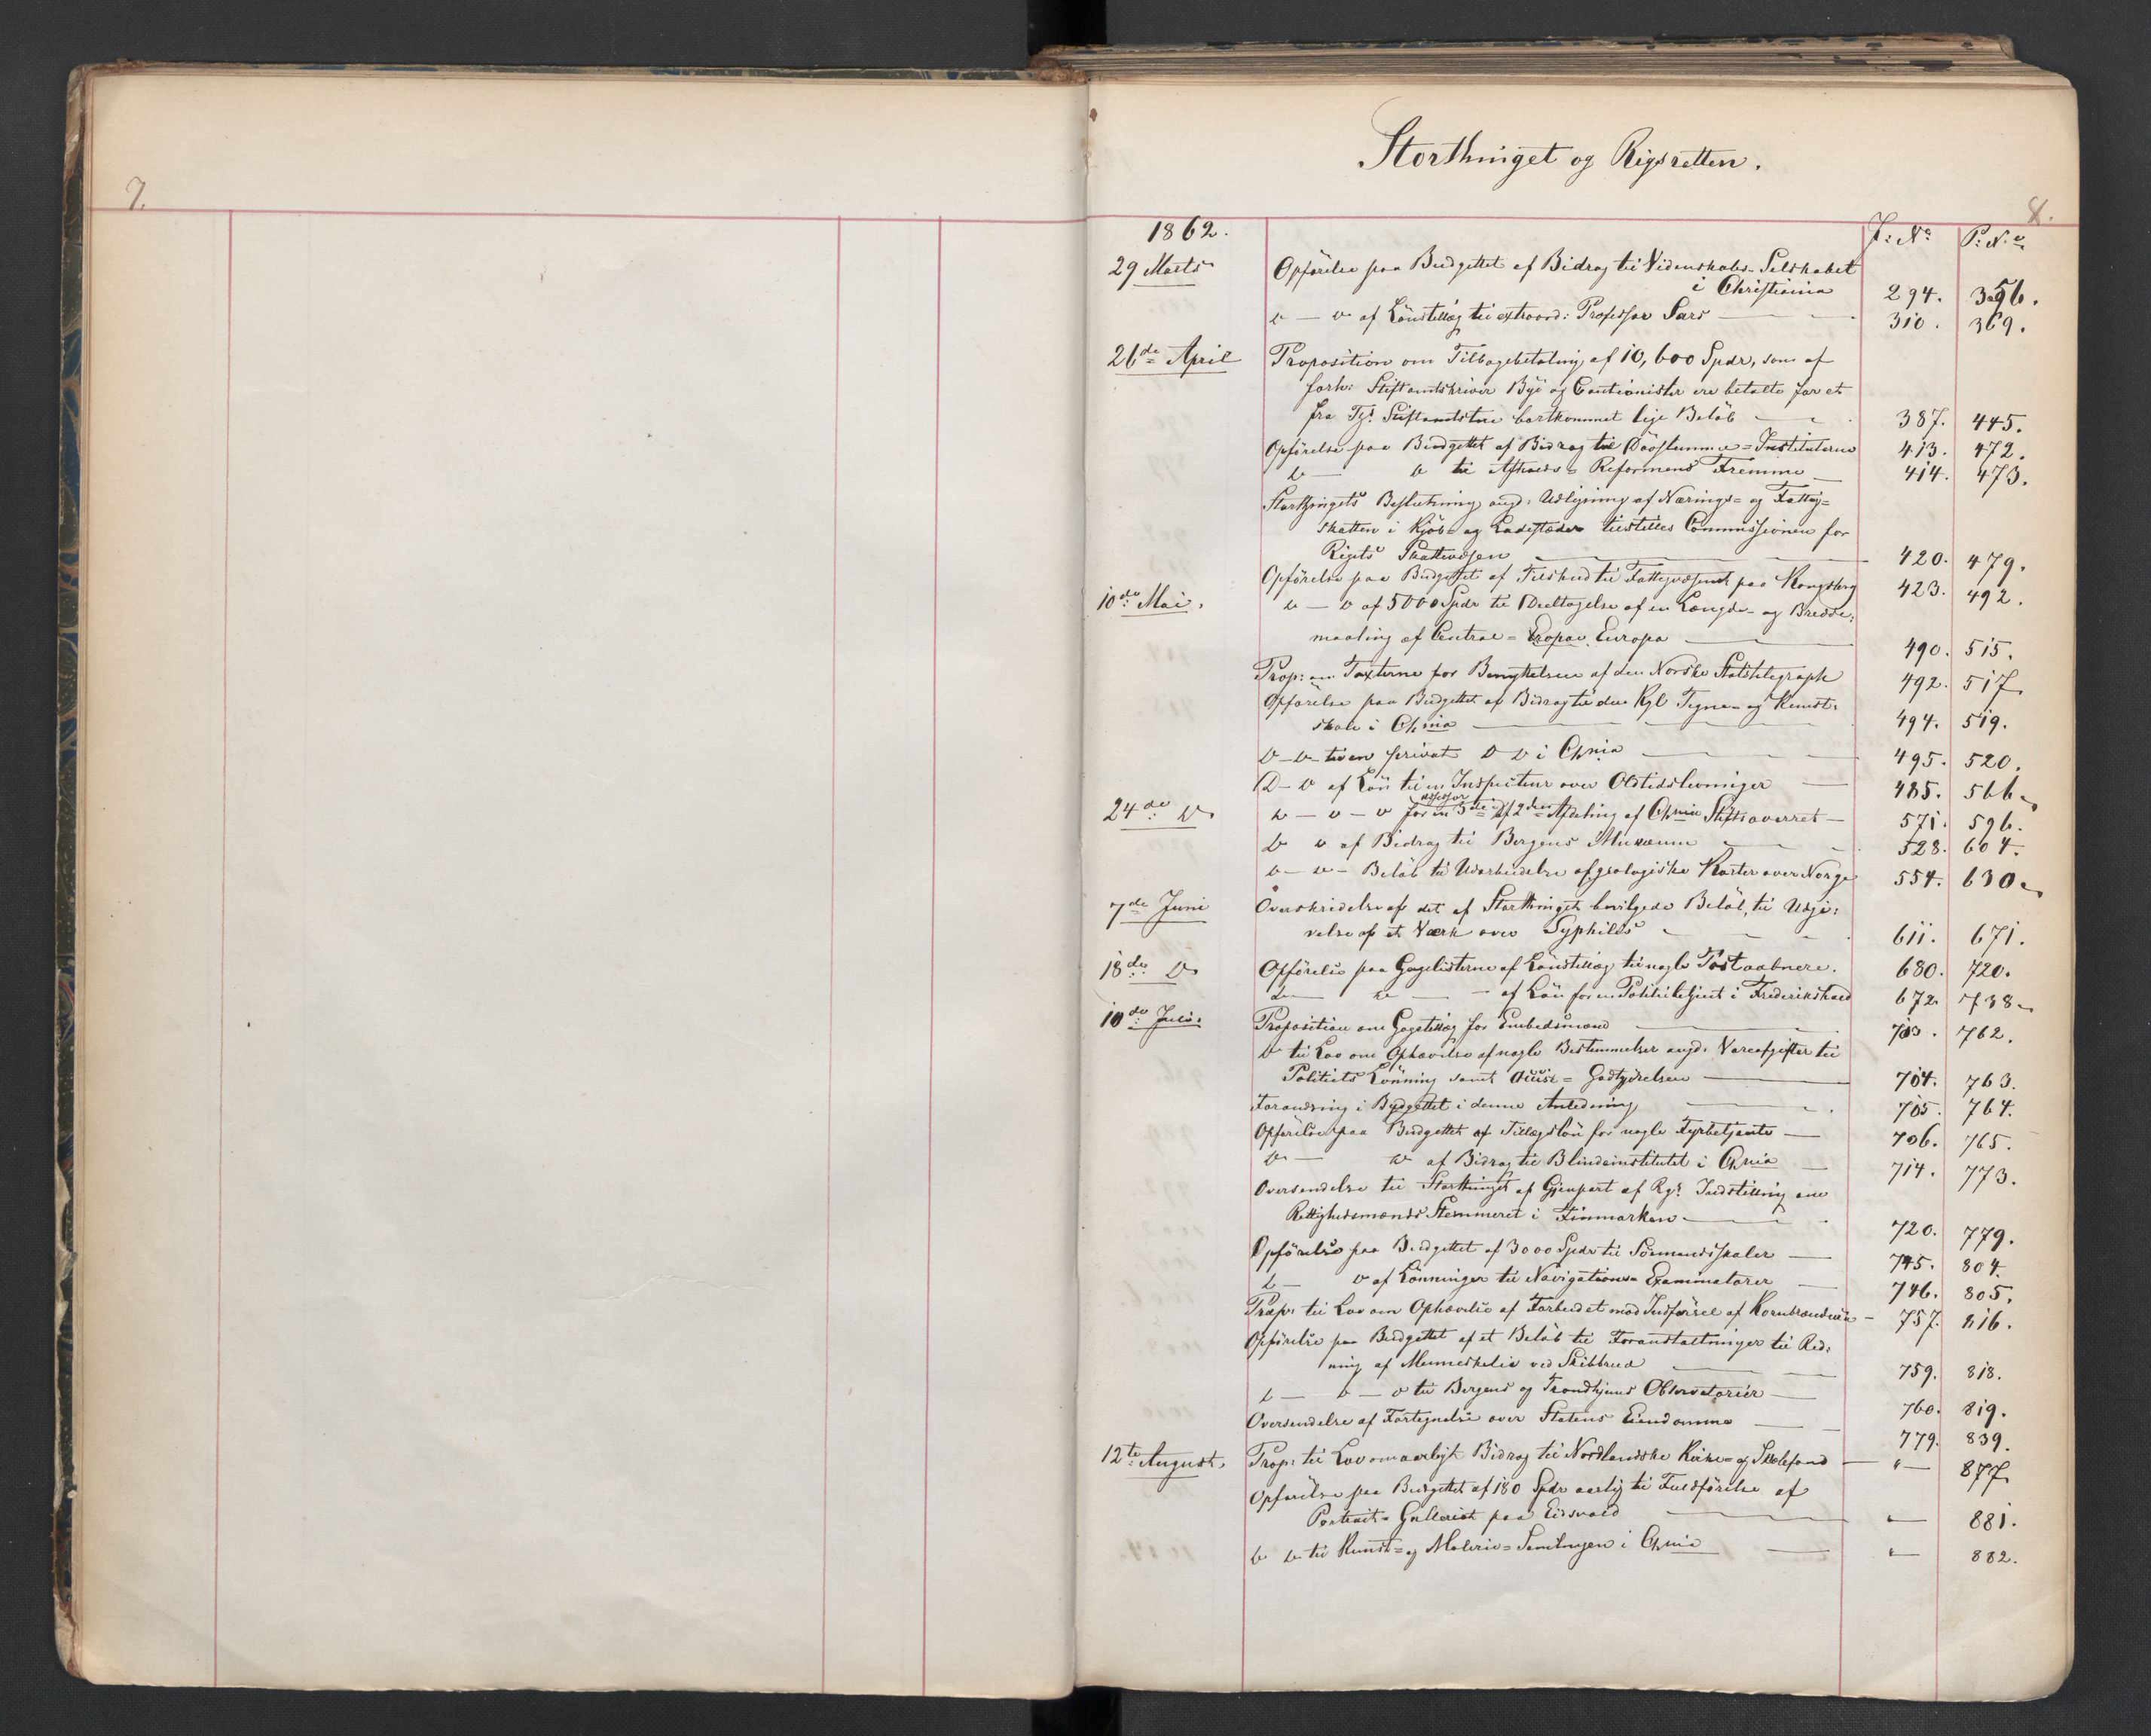 7.
Storthinget og Rigsretten.
8.
1862. J: No P: No
29 Marts Opførelse paa Budgettet af Bidrag til Videnskabs-Selskabet
i Christiania 294. 356.
D — D af Lönstillæg til extraord: Professor Sars — 310. 369.
26de April Proposition om Tilbagebetaling af 10,600 Spdr, som af
forh: Stiftamtskriver Bye og Cautionister ere betalte for et
fra Stiftamtstuen bortkommet lige Beløb — 387. 445.
Opførelse paa Budgettet af Bidrag til Døvstumme-Institutterne 413. 472.
D — D til Afholds-Reformens Fremme — 414. 473.
Storthingets Beslutning angd: Udligning af Nærings- og Fattig-
skatten i Kjöb- og Ladestæder tilstilles Commissionen for
Rigets Skattevæsen — 420. 479.
Opførelse paa Budgettet af Tilskud til Fattigvæsenet paa Kongsberg 423. 492.
10de Mai. D — D af 5000 Spdr til Deeltagelse af en Længde- og Bredde-
maaling af Central-Eropa Europa — 490. 515.
Prop: om Taxterne for Benyttelsen af den Norske Statstelegraph 492. 517
Opførelse paa Budgettet af Bidrag til den Kgl Tegne- og Kunst-
skole i Chnia — 494. 519.
D — D til en privat D D i Chnia — 495. 520.
D — D af Lön til en Inspecteur over Oldtidslevninger — 485. 566.
24de D. D — D — D for en 3die Assessor i 2den Afdeling af Chnia Stiftsoverret — 571. 596.
D D af Bidrag til Bergens Museum — 528. 604.
D — D — Beløb til Udarbeidelse af geologiske Karter over Norge 554. 630.
7de Juni Overskridelse af det af Storthinget bevilgede Beløb, til Udgi-
velse af et Værk over Syphilis — 611. 671.
18de D. Opførelse paa Gagelisterne af Lönstillæg til nogle Postaabnere. 680. 720.
D — D — af Lön for en Politibetjent i Frederikshald 672. 738.
10de Juli. Proposition om Gagetillæg for Embedsmænd — 703. 762.
D til Lov om Ophævelse af nogle Bestemmelser angd. Vareafgifter til
Politiets Lönning samt Accise-Godtgjörelsen — 704. 763.
Forandring i Budgettet i denne Anledning — 705. 764.
Opførelse paa Budgettet af Tillægslön for nogle Fyrbetjente — 706. 765.
D — D af Bidrag til Blindeinstitutet i Chnia — 714. 773.
Oversendelse til Storthinget af Gjenpart af Rgs Indstilling om
Rettighedsmænds Stemmeret i Finmarken — 720. 779.
Opførelse paa Budgettet af 3000 Spdr til Sömandsskoler — 745. 804.
D — D af Lönninger til Navigations-Examinatorer — 746. 805.
Prop: til Lov om Ophævelse af Forbudet mod Indførsel af Kornbrændeviin — 757. 816.
Opførelse paa Budgettet af et Beløb til Foranstaltninger til Red-
ning af Menneskeliv ved Skibbrud — 759. 818.
D — D — D til Bergens og Trondhjems Observatorier — 760. 819.
Oversendelse af Fortegnelse over Statens Eiendomme — 779. 839.
12te August. Prop: til Lov om aarligt Bidrag til Nordlandske Kirke- og Skolefond — " — 877
Opførelse paa Budgettet af 180 Spdr aarlig til Fuldförelse af
Portrait-Galleriet paa Eidsvold — " — 881.
D D til Kunst- og Malerie-Samlingen i Chnia — " — 882.